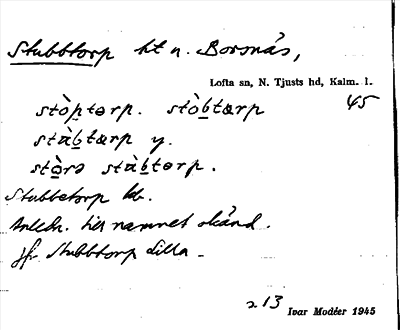 Stubbtorp ht n. Borsnäs,
Lofta sn, N. Tjusts hd, Kalm. l.
45
stòptərp. stòbtærp
stàbtærp y.
stòrə stàbtərp.
Stubbetorp kb.
Anledn. till namnet okänd.
jfr Stubbtorp Lilla
213
Ivar Modéer 1945